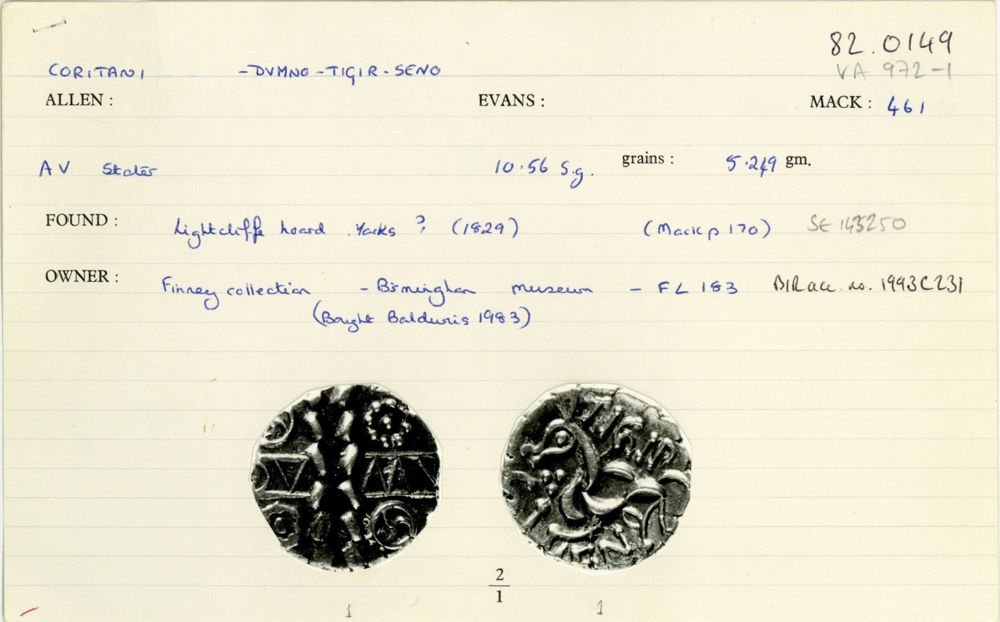 82.0149
CORITANI -DVMNO-TIGIR-SENO VA 972-1
ALLEN: EVANS: MACK: 461
AV Stater 10.56 S.g. grains: 5.249 gm.
FOUND: Lightcliffe hoard Yorks ? (1829) (Mack p 170) SE 143250
OWNER: Finney collection - Birmingham museum - FL 183 BIR acc. no. 1993C231
(Bought Baldwins 1983)
TIGIR
SEN
2
1
1 1